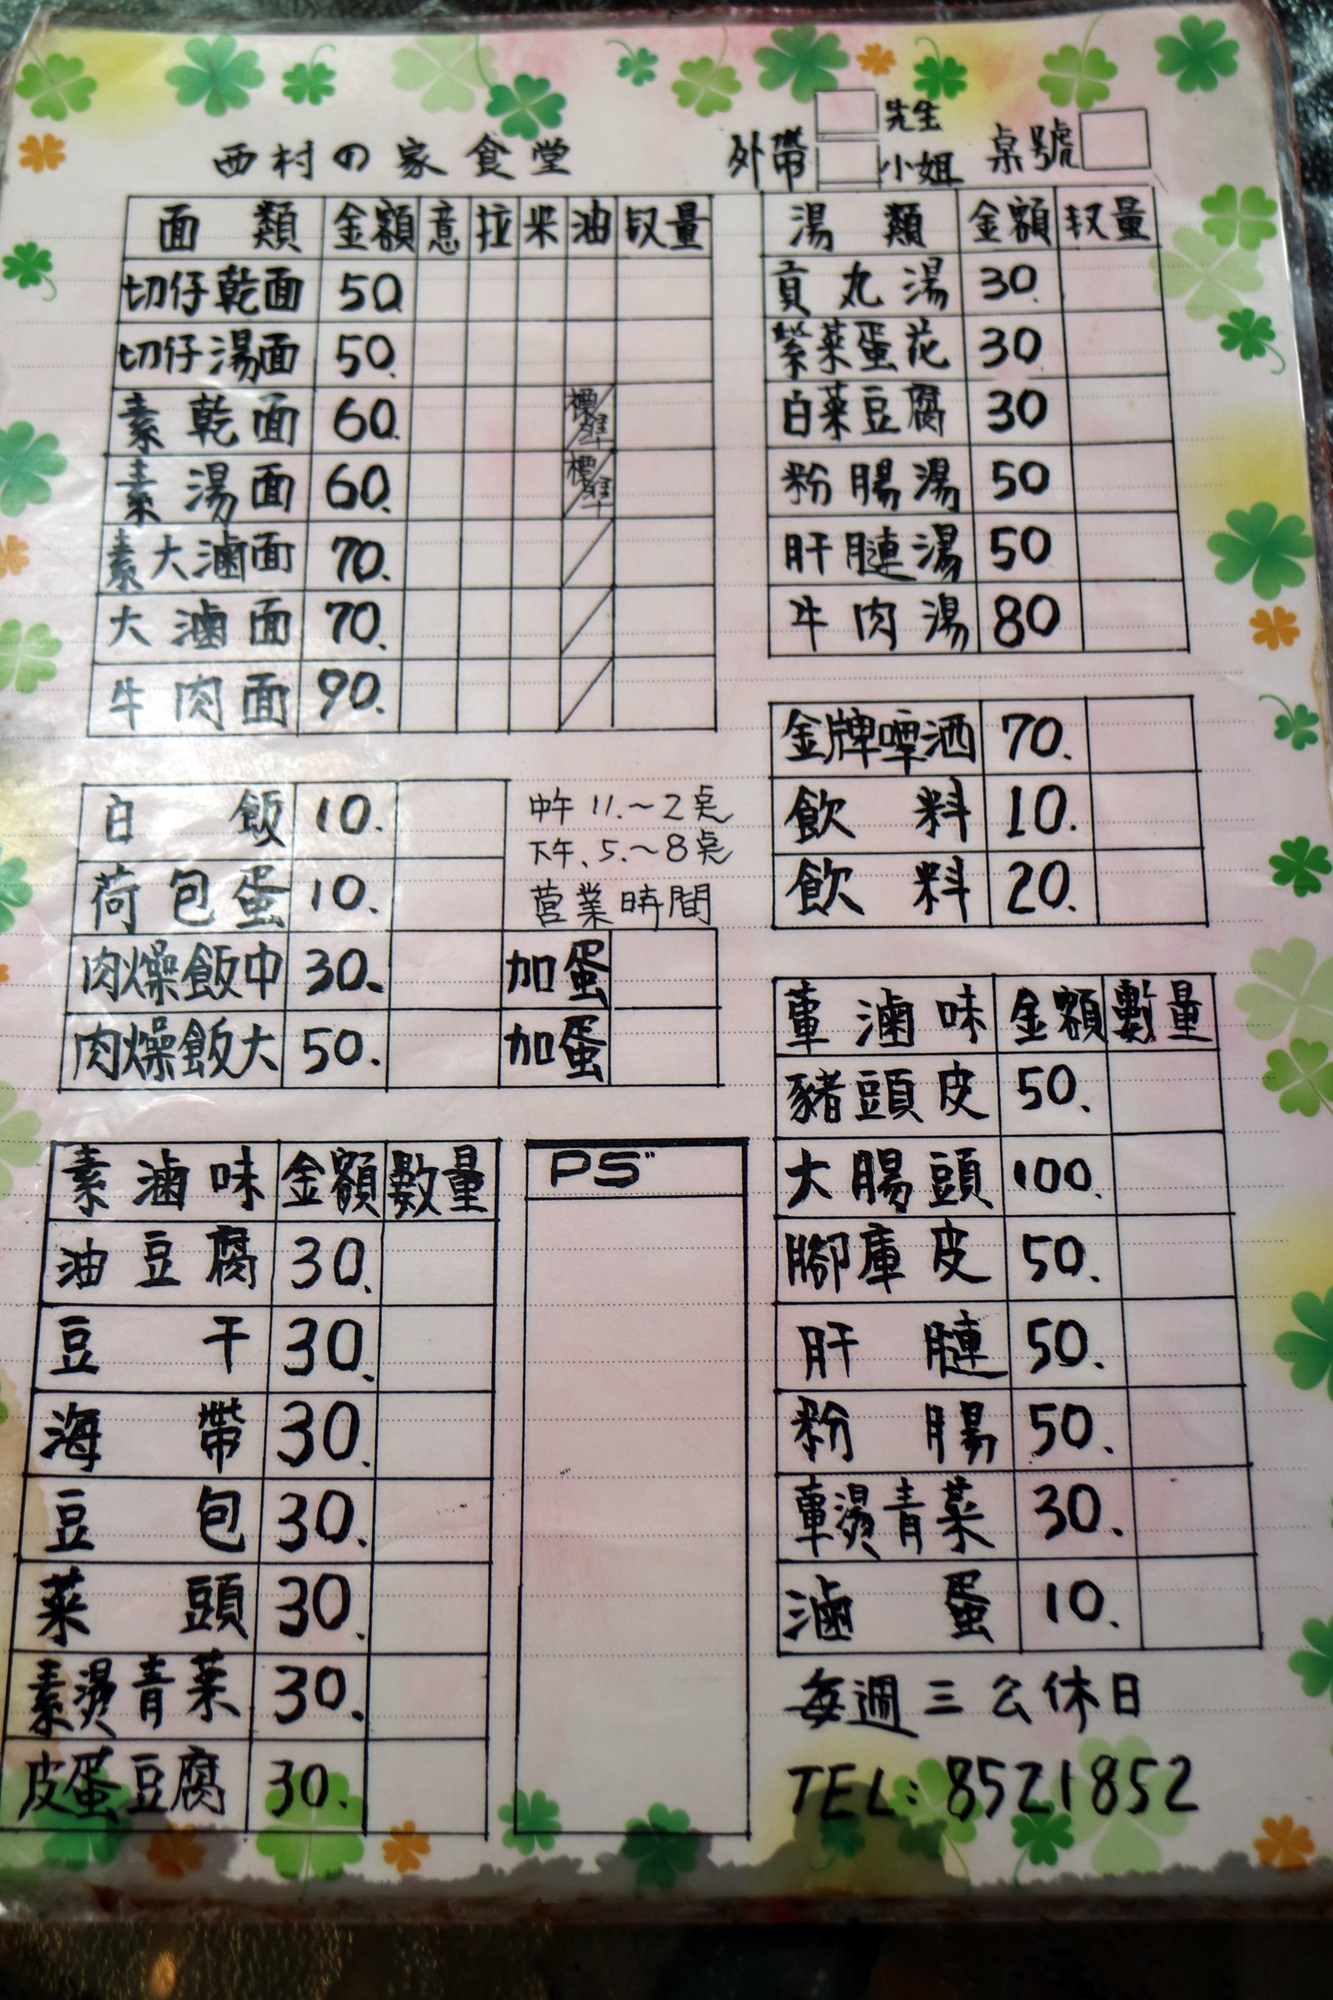 西村の家食堂
外帶 先生 小姐 桌號
面類 金額 意 拉 米 油 収量
切仔乾面 50.
切仔湯面 50.
素乾面 60. 標準
素湯面 60. 標準
素大滷面 70.
大滷面 70.
牛肉面 90.
湯類 金額 収量
貢丸湯 30.
紫菜蛋花 30
白菜豆腐 30
粉腸湯 50
肝腱湯 50
牛肉湯 80
白飯 10.
荷包蛋 10.
肉燥飯中 30. 加蛋
肉燥飯大 50. 加蛋
中午 11.~2桌
下午.5.~8桌
営業時間
金牌啤酒 70.
飲料 10.
飲料 20.
素滷味 金額 數量
油豆腐 30.
豆干 30.
海帶 30.
豆包 30.
菜頭 30.
素燙青菜 30.
皮蛋豆腐 30.
PS"
葷滷味 金額 數量
豬頭皮 50.
大腸頭 100.
腳庫皮 50.
肝腱 50.
粉腸 50.
葷燙青菜 30.
滷蛋 10.
每週三公休日
TEL:8521852